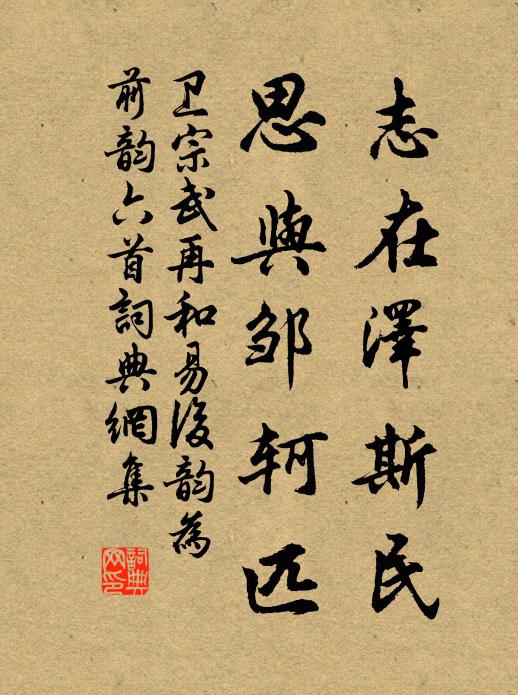 志在澤斯民
思與邹轲匹
卫宗武再和易後韵為
前韵六首詞典網集
詞典網印